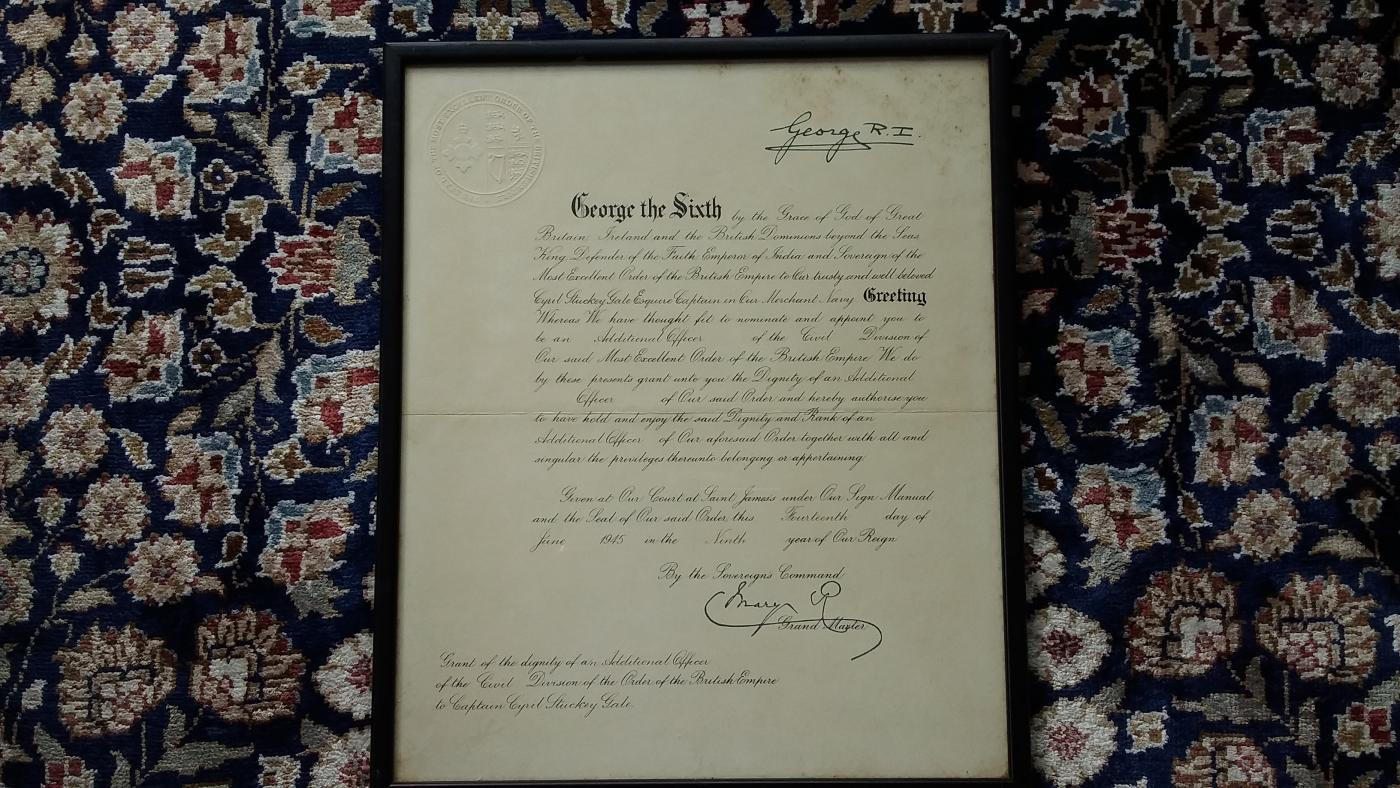 SEAL OF THE MOST EXCELLENT ORDER OF THE BRITISH
George R.I.
George the Sixth by the Grace of God of Great
Britain Ireland and the British Dominions beyond the Seas
King Defender of the Faith Emperor of India and Sovereign of the
Most Excellent Order of the British Empire to Our trusty and well beloved
Cyril Stuckey Gale Esquire Captain in Our Merchant Navy Greeting
Whereas We have thought fit to nominate and appoint you to
be an Additional Officer of the Civil Division of
Our said Most Excellent Order of the British Empire We do
by these presents grant unto you the Dignity of an Additional
Officer of Our said Order and hereby authorise you
to have hold and enjoy the said Dignity and Rank of an
Additional Officer of Our aforesaid Order together with all and
singular the privileges thereunto belonging or appertaining
Given at Our Court at Saint James's under Our Sign Manual
and the Seal of Our said Order this Fourteenth day of
June 1945 in the Ninth year of Our Reign
By the Sovereign's Command
Mary R
Grand Master
Grant of the dignity of an Additional Officer
of the Civil Division of the Order of the British Empire
to Captain Cyril Stuckey Gale.